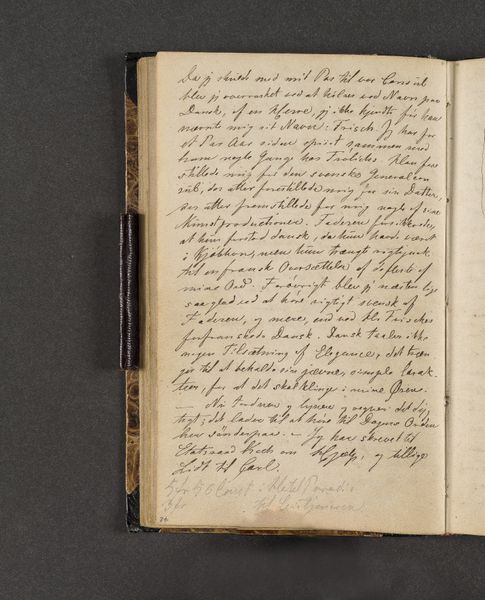 Da jeg skulde med mit Pas til vor Consul
blev jeg overrasket ved at hilses ved Navn paa
Dansk, af en Herre, jeg ikke kjendte før han
nævnte mig sit Navn: Frisch. Jeg har for
et Par Aar siden spiist sammen med
ham nogle Gange hos Frölichs. Han fore
stillede mig for den svenske Generalcon
sul, der atter forestillede mig for sin Datter,
der atter fremstillede for mig nogle af sine
Kunstproductioner. Faderen forsikkrede,
at hun forstod dansk, da hun havde været
i Kjøbhvn, men hun trængte rigtignok
til en fransk Oversættelse af de fleste af
mine Ord. Forøvrigt blev jeg næsten lige
saa glad ved at høre rigtigt svensk af
Faderen, og mere, end ved Hr Frisches
forfranskede Dansk. Dansk taaler ikke
nogen Tilsætning af Elegance, det træn
ger til at beholde sin jævne, simple Carak
teer, for at det skal klinge i mine Øren.
— Nu tordner og lyner og regner det dyg
tigt; det lader til at høre til Dagens Orden
her söndenpaa. — Jeg har skrevet til
Etatsraad om Hjælp, og tillige
lidt til Carl.
5 fr 50 Cent: Hotel
3 fr